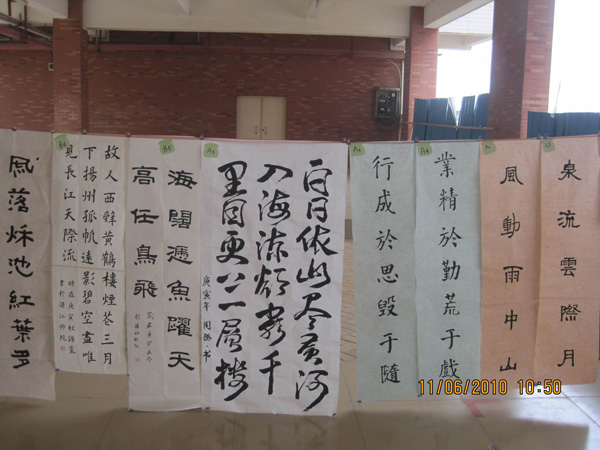 泉流雲際月
風動雨中山
業精於勤荒于戲
行成於思毀于隨
白日依山盡黃河
入海流欲窮千
里目更上一層樓
庚寅年
書
海闊憑魚躍天
高任鳥飛
故人西辭黃鶴樓煙花三月
下揚州孤帆遠影碧空盡唯
見長江天際流
時在庚寅
風落秋池紅葉多
11/06/2010 10:50